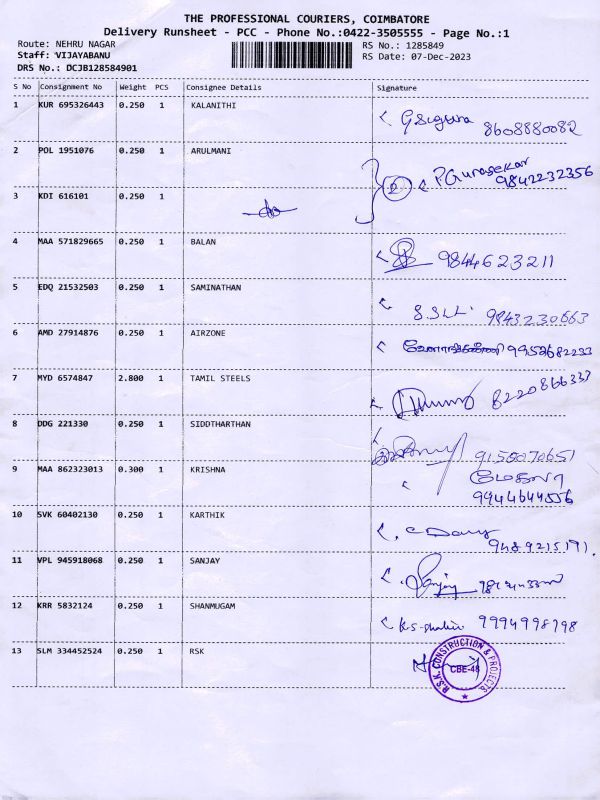 THE PROFESSIONAL COURIERS, COIMBATORE
Delivery Runsheet - PCC - Phone No.:0422-3505555 - Page No.:1
Route: NEHRU NAGAR
RS No.: 1285849
Staff: VIJAYABANU
RS Date: 07-Dec-2023
DRS No.: DCJB128584901
S No Consignment No Weight PCS Consignee Details Signature
1 KUR 695326443 0.250 1 KALANITHI
8608880082
2 POL 1951076 0.250 1 ARULMANI
P. Gunasekar
9842232356
3 KDI 616101 0.250 1
2
4 MAA 571829665 0.250 1 BALAN
9844623211
5 EDQ 21532503 0.250 1 SAMINATHAN
9843230663
6 AMD 27914876 0.250 1 AIRZONE
9952682233
7 MYD 6574847 2.800 1 TAMIL STEELS
8220866337
8 DDG 221330 0.250 1 SIDDTHARTHAN
9150070651
9 MAA 862323013 0.300 1 KRISHNA
மேகலா
9944644556
10 SVK 60402130 0.250 1 KARTHIK
9489215191.
11 VPL 945918068 0.250 1 SANJAY
Sanjay
12 KRR 5832124 0.250 1 SHANMUGAM
9994998798
13 SLM 334452524 0.250 1 RSK
R.S.K. CONSTRUCTION & PROJECTS
CBE-48